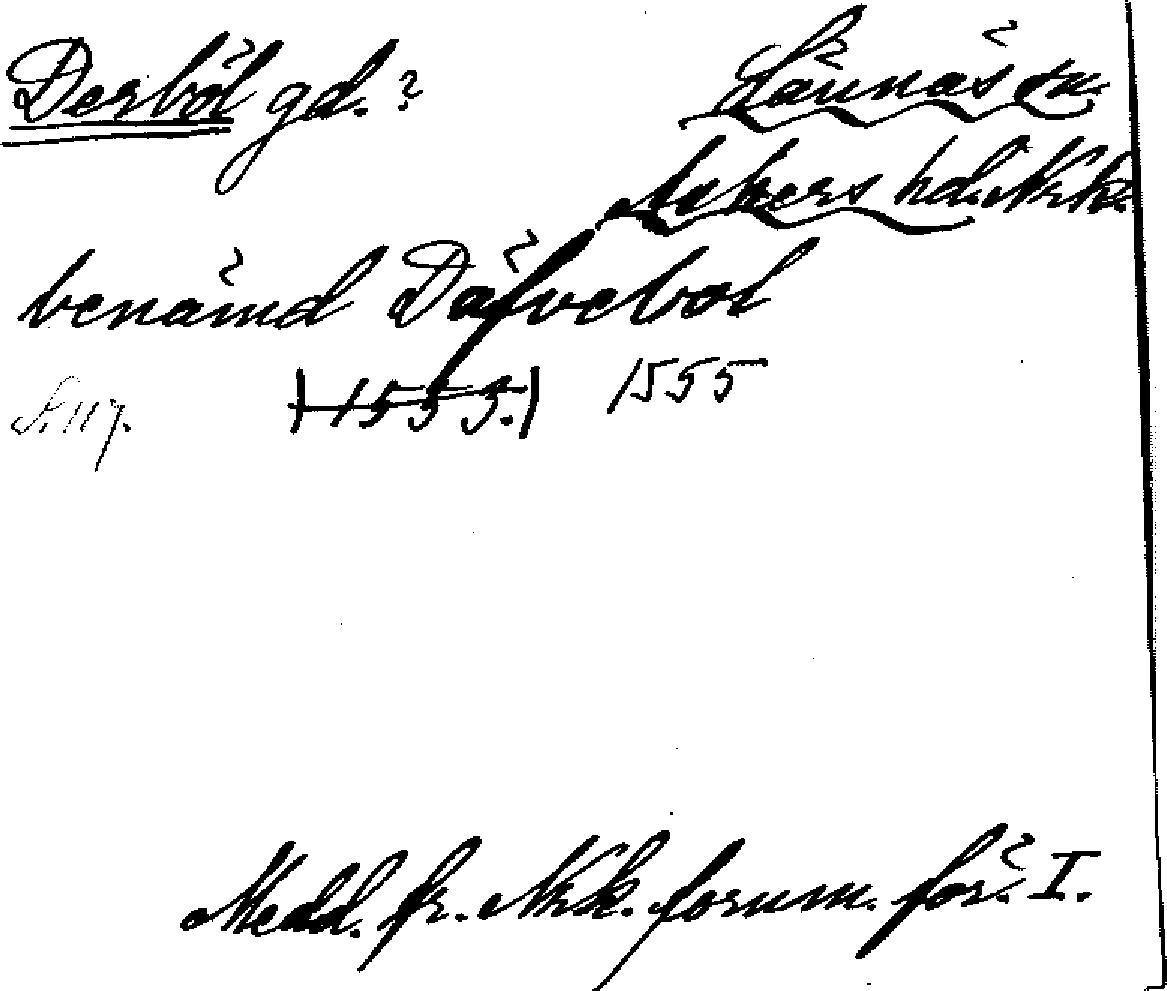 Derböl gd.? Lännäs sn.
Askers hd. Nrk.
benämd Däfvebol
S. 117. (1555.) 1555
Medd. fr. Nrk. fornm. för. I.